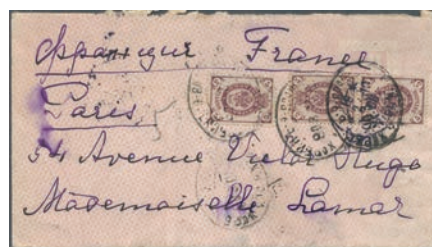 Франция France
Paris
54 Avenue Victor Hugo
Mademoiselle Lamar